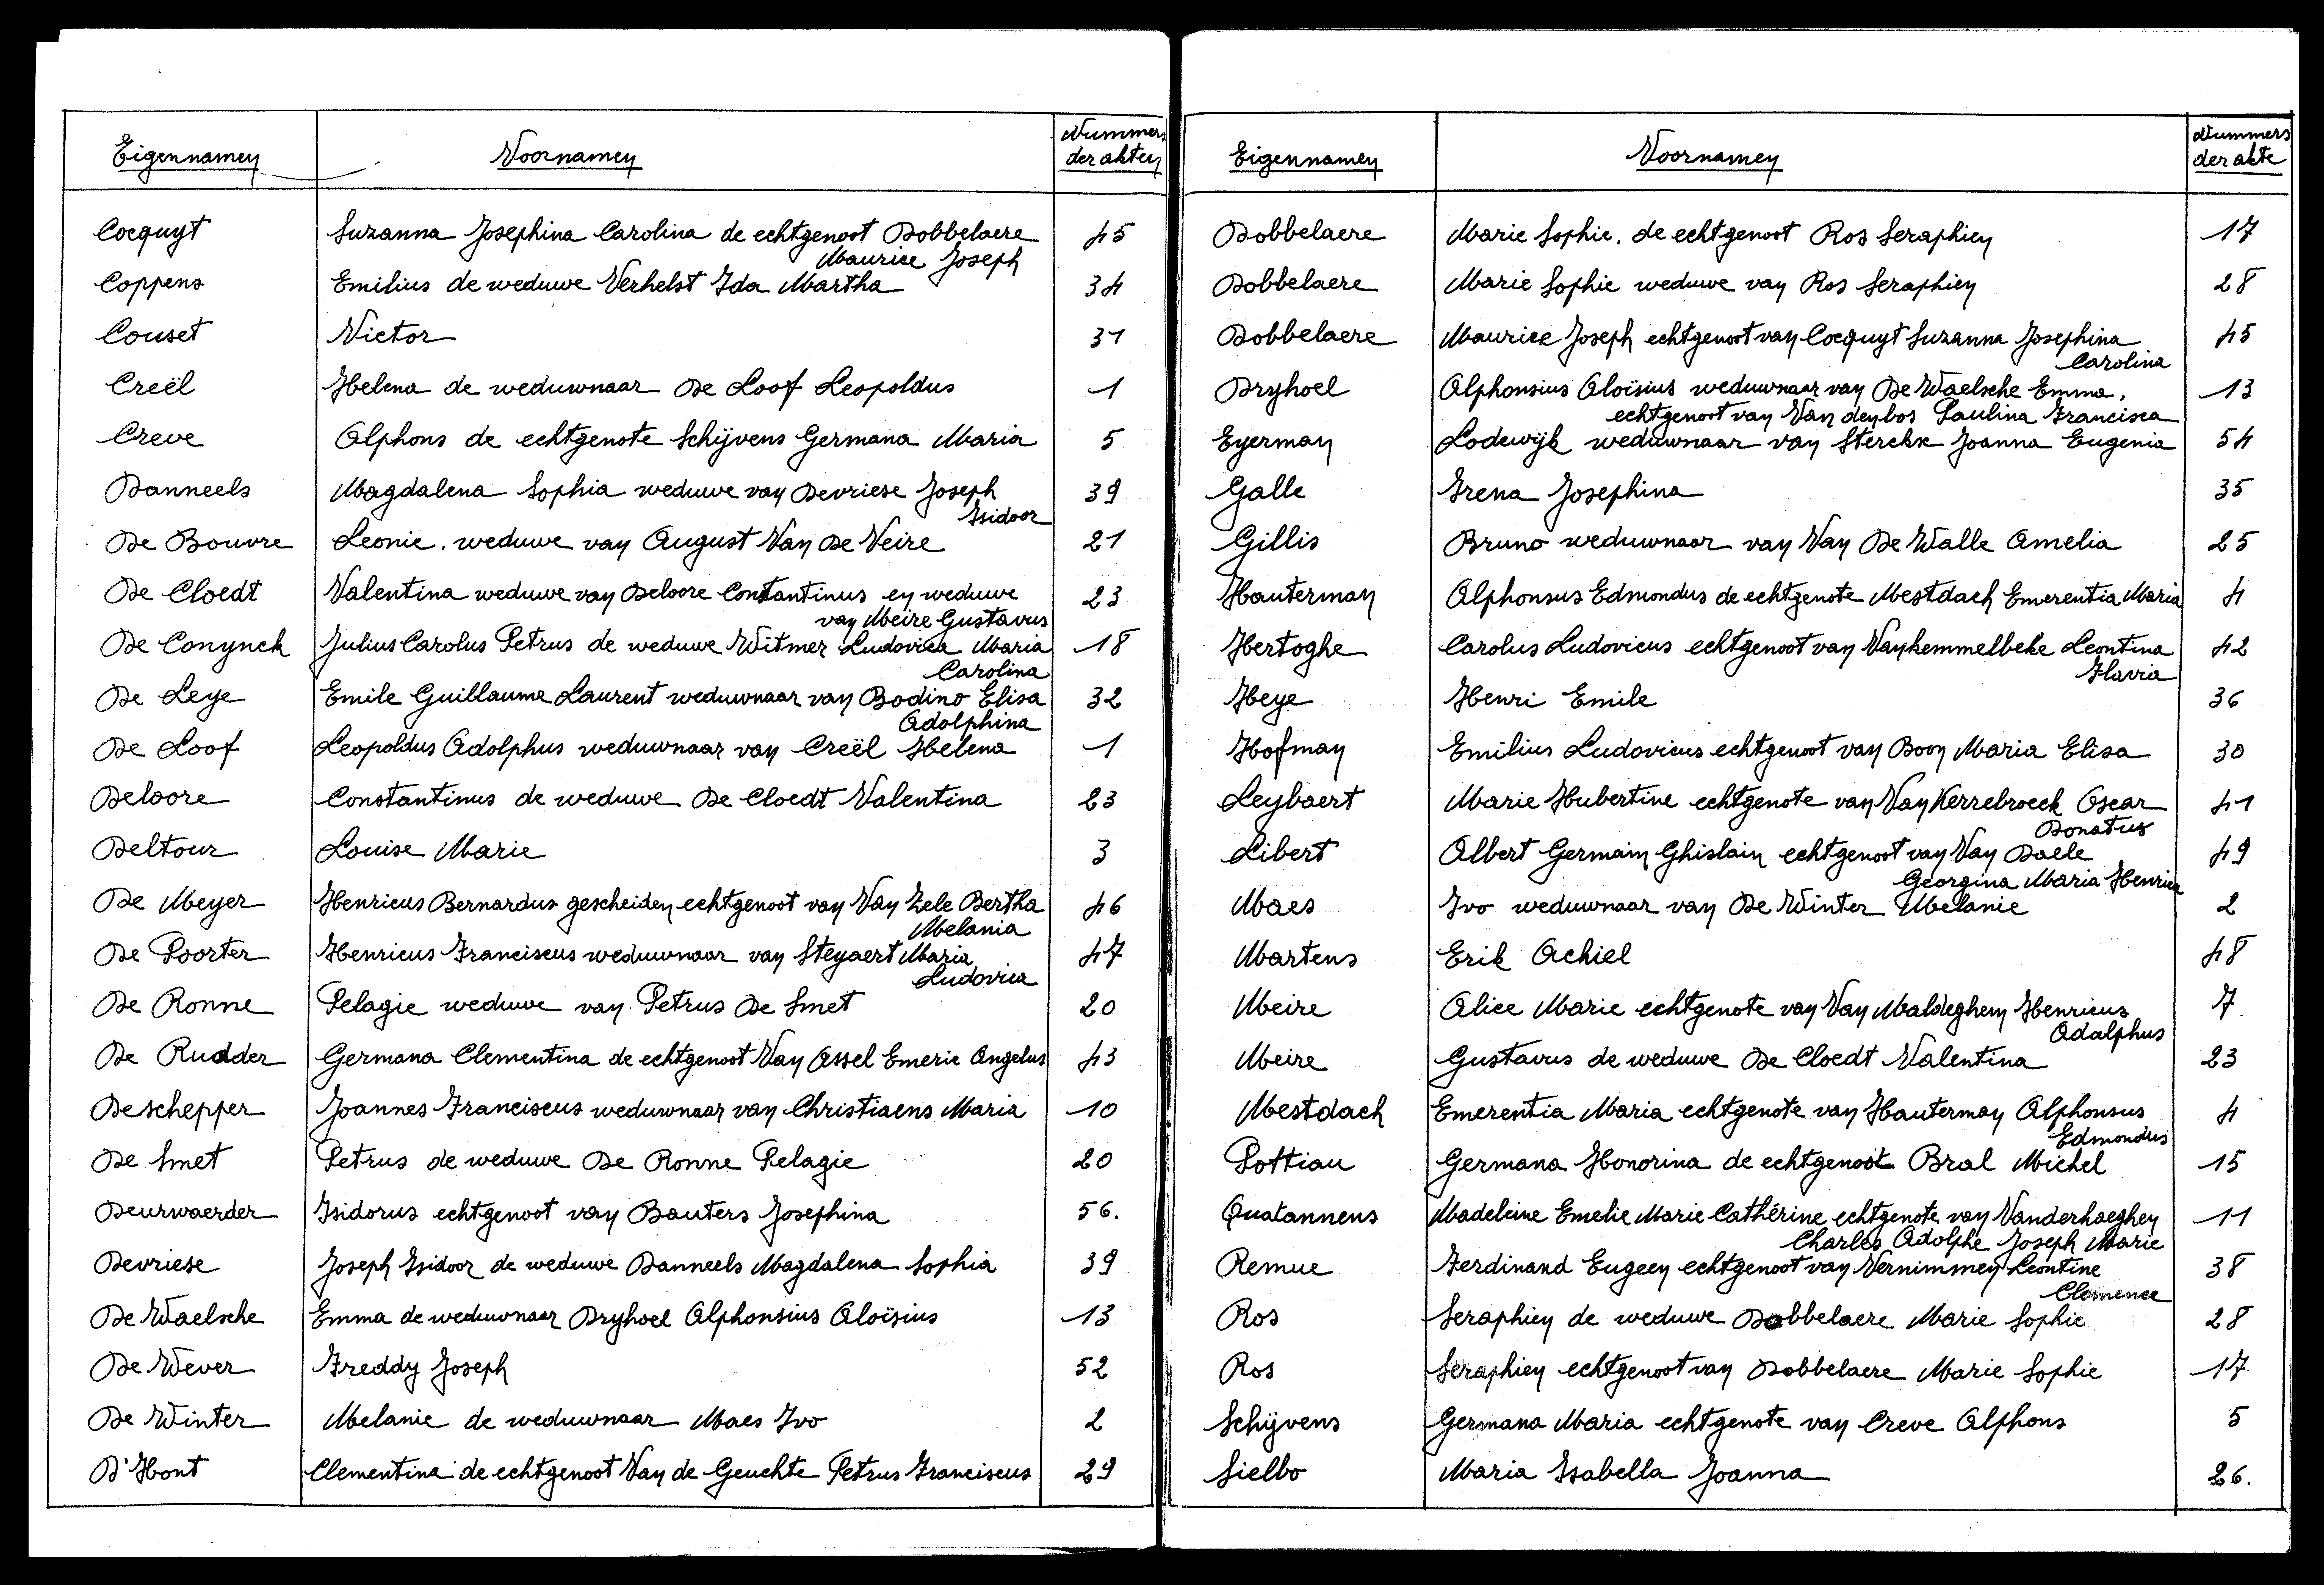 Eigennamen Voornamen Nummers der akten
Cocquyt Suzanna Josephina Carolina de echtgenoot Dobbelaere 45
Maurice Joseph
Coppens Emilius de weduwe Verhelst Ida Martha 34
Couset Victor 31
Creël Helena de weduwnaar De Loof Leopoldus 1
Creve Alphons de echtgenote Schijvens Germana Maria 5
Danneels Magdalena Sophia weduwe van Devriese Joseph 39
Isidoor
De Bouvre Leonie. weduwe van August Van De Veire 21
De Cloedt Valentina weduwe van Deloore Constantinus en weduwe 23
van Meire Gustavus
De Conynck Julius Carolus Petrus de weduwe Witmer Ludovica Maria 18
Carolina
De Leye Emile Guillaume Laurent weduwnaar van Bodino Elisa 32
Adolphina
De Loof Leopoldus Adolphus weduwnaar van Creël Helena 1
Deloore Constantinus de weduwe De Cloedt Valentina 23
Deltour Louise Marie 3
De Meyer Henricus Bernardus gescheiden echtgenoot van Van Zele Bertha 46
Melania
De Poorter Henricus Franciscus weduwnaar van Steyaert Maria 47
Ludovica
De Ronne Pelagie weduwe van Petrus De Smet 20
De Rudder Germana Clementina de echtgenoot Van Assel Emerie Angelus 43
Deschepper Joannes Franciscus weduwnaar van Christiaens Maria 10
De Smet Petrus de weduwe De Ronne Pelagie 20
Deurwaerder Isidorus echtgenoot van Bauters Josephina 56.
Devriese Joseph Isidoor de weduwe Danneels Magdalena Sophia 39
De Waelsche Emma de weduwnaar Dryhoel Alphonsius Aloïsius 13
De Wever Freddy Joseph 52
De Winter Melanie de weduwnaar Maes Ivo 2
D'Hont Clementina de echtgenoot Van de Geuchte Petrus Franciscus 29
Eigennamen Voornamen Nummers der akte
Dobbelaere Marie Sophie. de echtgenoot Ros Seraphien 17
Dobbelaere Marie Sophie weduwe van Ros Seraphien 28
Dobbelaere Maurice Joseph echtgenoot van Cocquyt Suzanna Josephina 45
Carolina
Dryhoel Alphonsius Aloïsius weduwnaar van De Waelsche Emma, 13
echtgenoot van Van den bos Paulina Francisca
Eyerman Lodewijk weduwnaar van Sterckx Joanna Eugenia 54
Galle Irena Josephina 35
Gillis Bruno weduwnaar van Van De Walle Amelia 25
Hauterman Alphonsus Edmondus de echtgenote Mestdach Emerentia Maria 4
Hertoghe Carolus Ludovicus echtgenoot van Vankemmelbeke Leontina 42
Flavia
Heye Henri Emile 36
Hofman Emilius Ludovicus echtgenoot van Boon Maria Elisa 30
Leybaert Marie Hubertine echtgenote van Van Kerrebroeck Oscar 41
Donatus
Libert Albert Germain Ghislain echtgenoot van Van Daele 49
Georgina Maria Henrica
Maes Ivo weduwnaar van De Winter Melanie 2
Martens Erik Achiel 48
Meire Alice Marie echtgenote van Van Maldeghem Henricus 7
Adalphus
Meire Gustavus de weduwe De Cloedt Valentina 23
Mestdach Emerentia Maria echtgenote van Hauterman Alphonsus 4
Edmondus
Pottiau Germana Honorina de echtgenoot Bral Michel 15
Quatannens Madeleine Emelie Marie Cathérine echtgenote van Vanderhaeghen 11
Charles Adolphe Joseph Marie
Remue Ferdinand Eugeen echtgenoot van Vernimmen Leontine 38
Clemence
Ros Seraphien de weduwe Dobbelaere Marie Sophie 28
Ros Seraphien echtgenoot van Dobbelaere Marie Sophie 17
Schijvens Germana Maria echtgenote van Creve Alphons 5
Sielbo Maria Isabella Joanna 26.